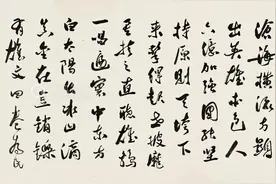 滄海橫流方顯
出英雄本色人
六億加強團結堅
持原則天垮下
来擎得起世披靡
矣扶之直聽雄鷄
一唱遍寰中東方
白太陽出冰山滴
真金在豈銷鑠
有雄文四卷為民